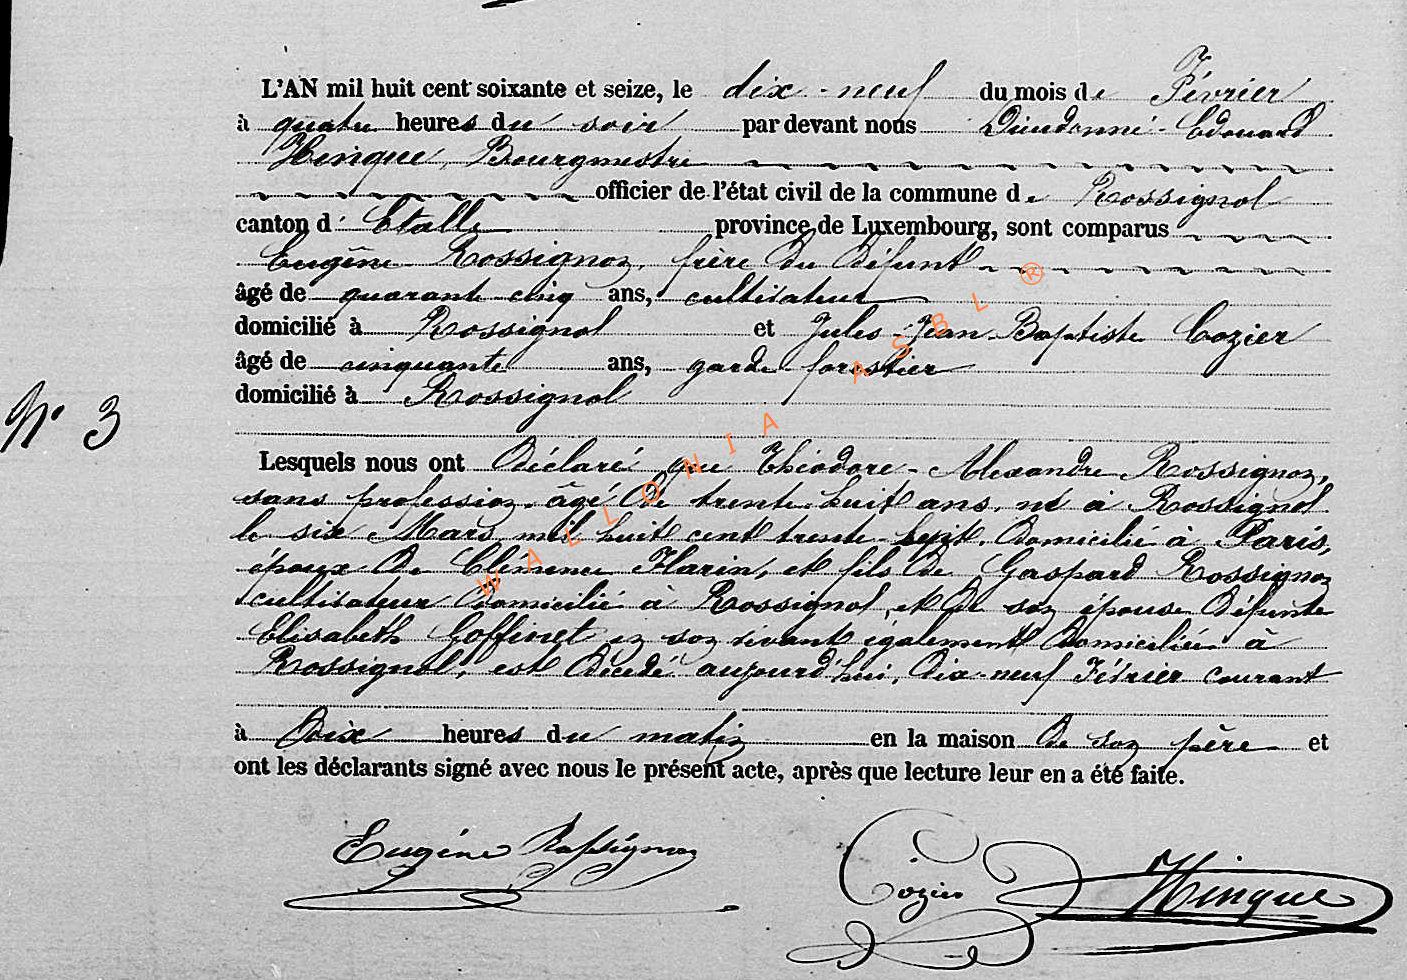 L'AN mil huit cent soixante et seize, le dix-neuf du mois de Février
à quatre heures du soir par devant nous Dieudonné-Edouard
Hinque, Bourgmestre
officier de l'état civil de la commune de Rossignol
canton d'Etalle province de Luxembourg, sont comparus
Eugène Rossignon, frère du défunt
âgé de quarante cinq ans, cultivateur
domicilié à Rossignol et Jules-Jean-Baptiste Cozier
âgé de cinquante ans, garde forestier
domicilié à Rossignol
N° 3
Lesquels nous ont déclaré que Théodore-Alexandre Rossignon,
sans profession, âgé de trente-huit ans, né à Rossignol
le six Mars mil huit cent trente-huit, domicilié à Paris,
époux de Clémence Harin, et fils de Gaspard Rossignon
cultivateur domicilié à Rossignol, et de son épouse défunte
Elisabeth Goffinet en son vivant également domiciliée à
Rossignol, est décédé aujourd'hui, dix-neuf Février courant
à dix heures du matin en la maison de son père et
ont les déclarants signé avec nous le présent acte, après que lecture leur en a été faite.
Eugène Rossignon Cozier Hinque
WALLONIA ASBL ®